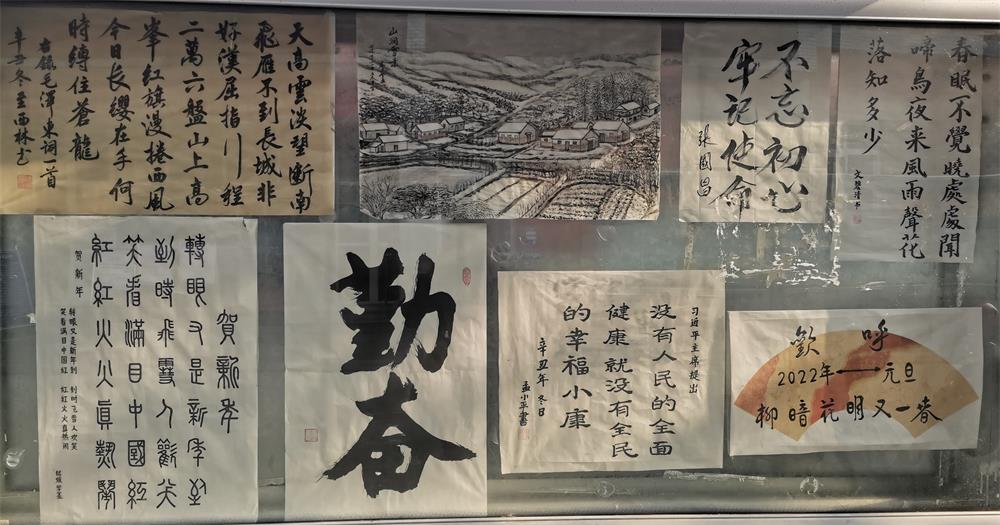 天高雲淡望斷南
飛雁不到長城非
好漢屈指行程
二萬六盤山上高
峯紅旗漫捲西風
今日長纓在手何
時縛住蒼龍
右錄毛澤東詞一首
辛丑冬至西林书
不忘初心
牢記使命
張國昌
春眠不覺曉處處聞
啼鳥夜來風雨聲花
落知多少
賀新年
轉眼又是新年到
到時飛雪人歡笑
笑看滿目中國紅
紅紅火火真熱鬧
贺新年
转眼又是新年到 到时飞雪人欢笑
笑看满目中国红 红红火火真热闹
勤奋
习近平主席提出
没有人民的全面
健康就没有全民
的幸福小康
辛丑年冬日
孟小平書
歡呼
2022年——元旦
柳暗花明又一春